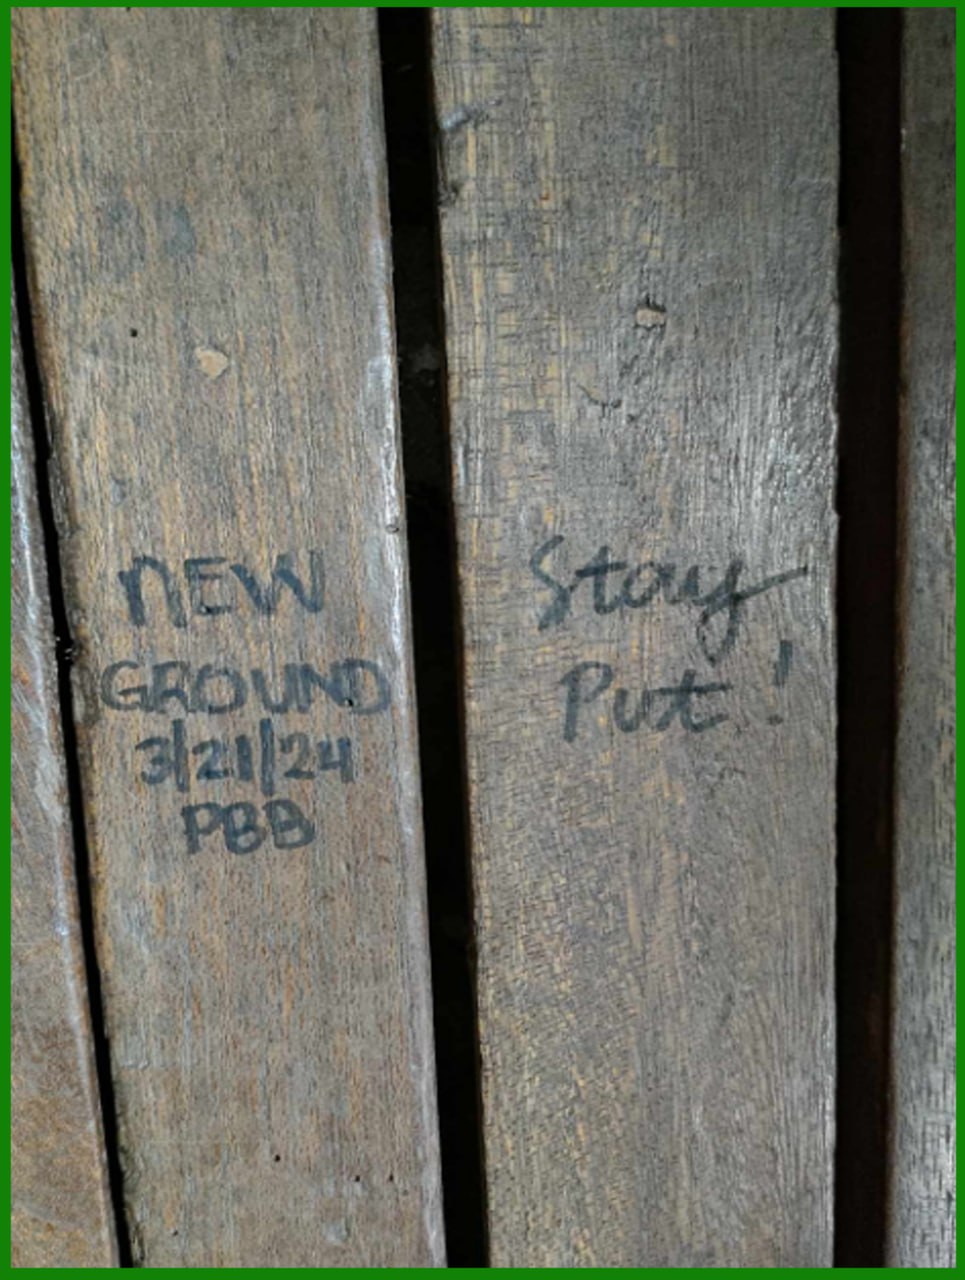 NEW
GROUND
3/21/24
PBB
Stay
Put!